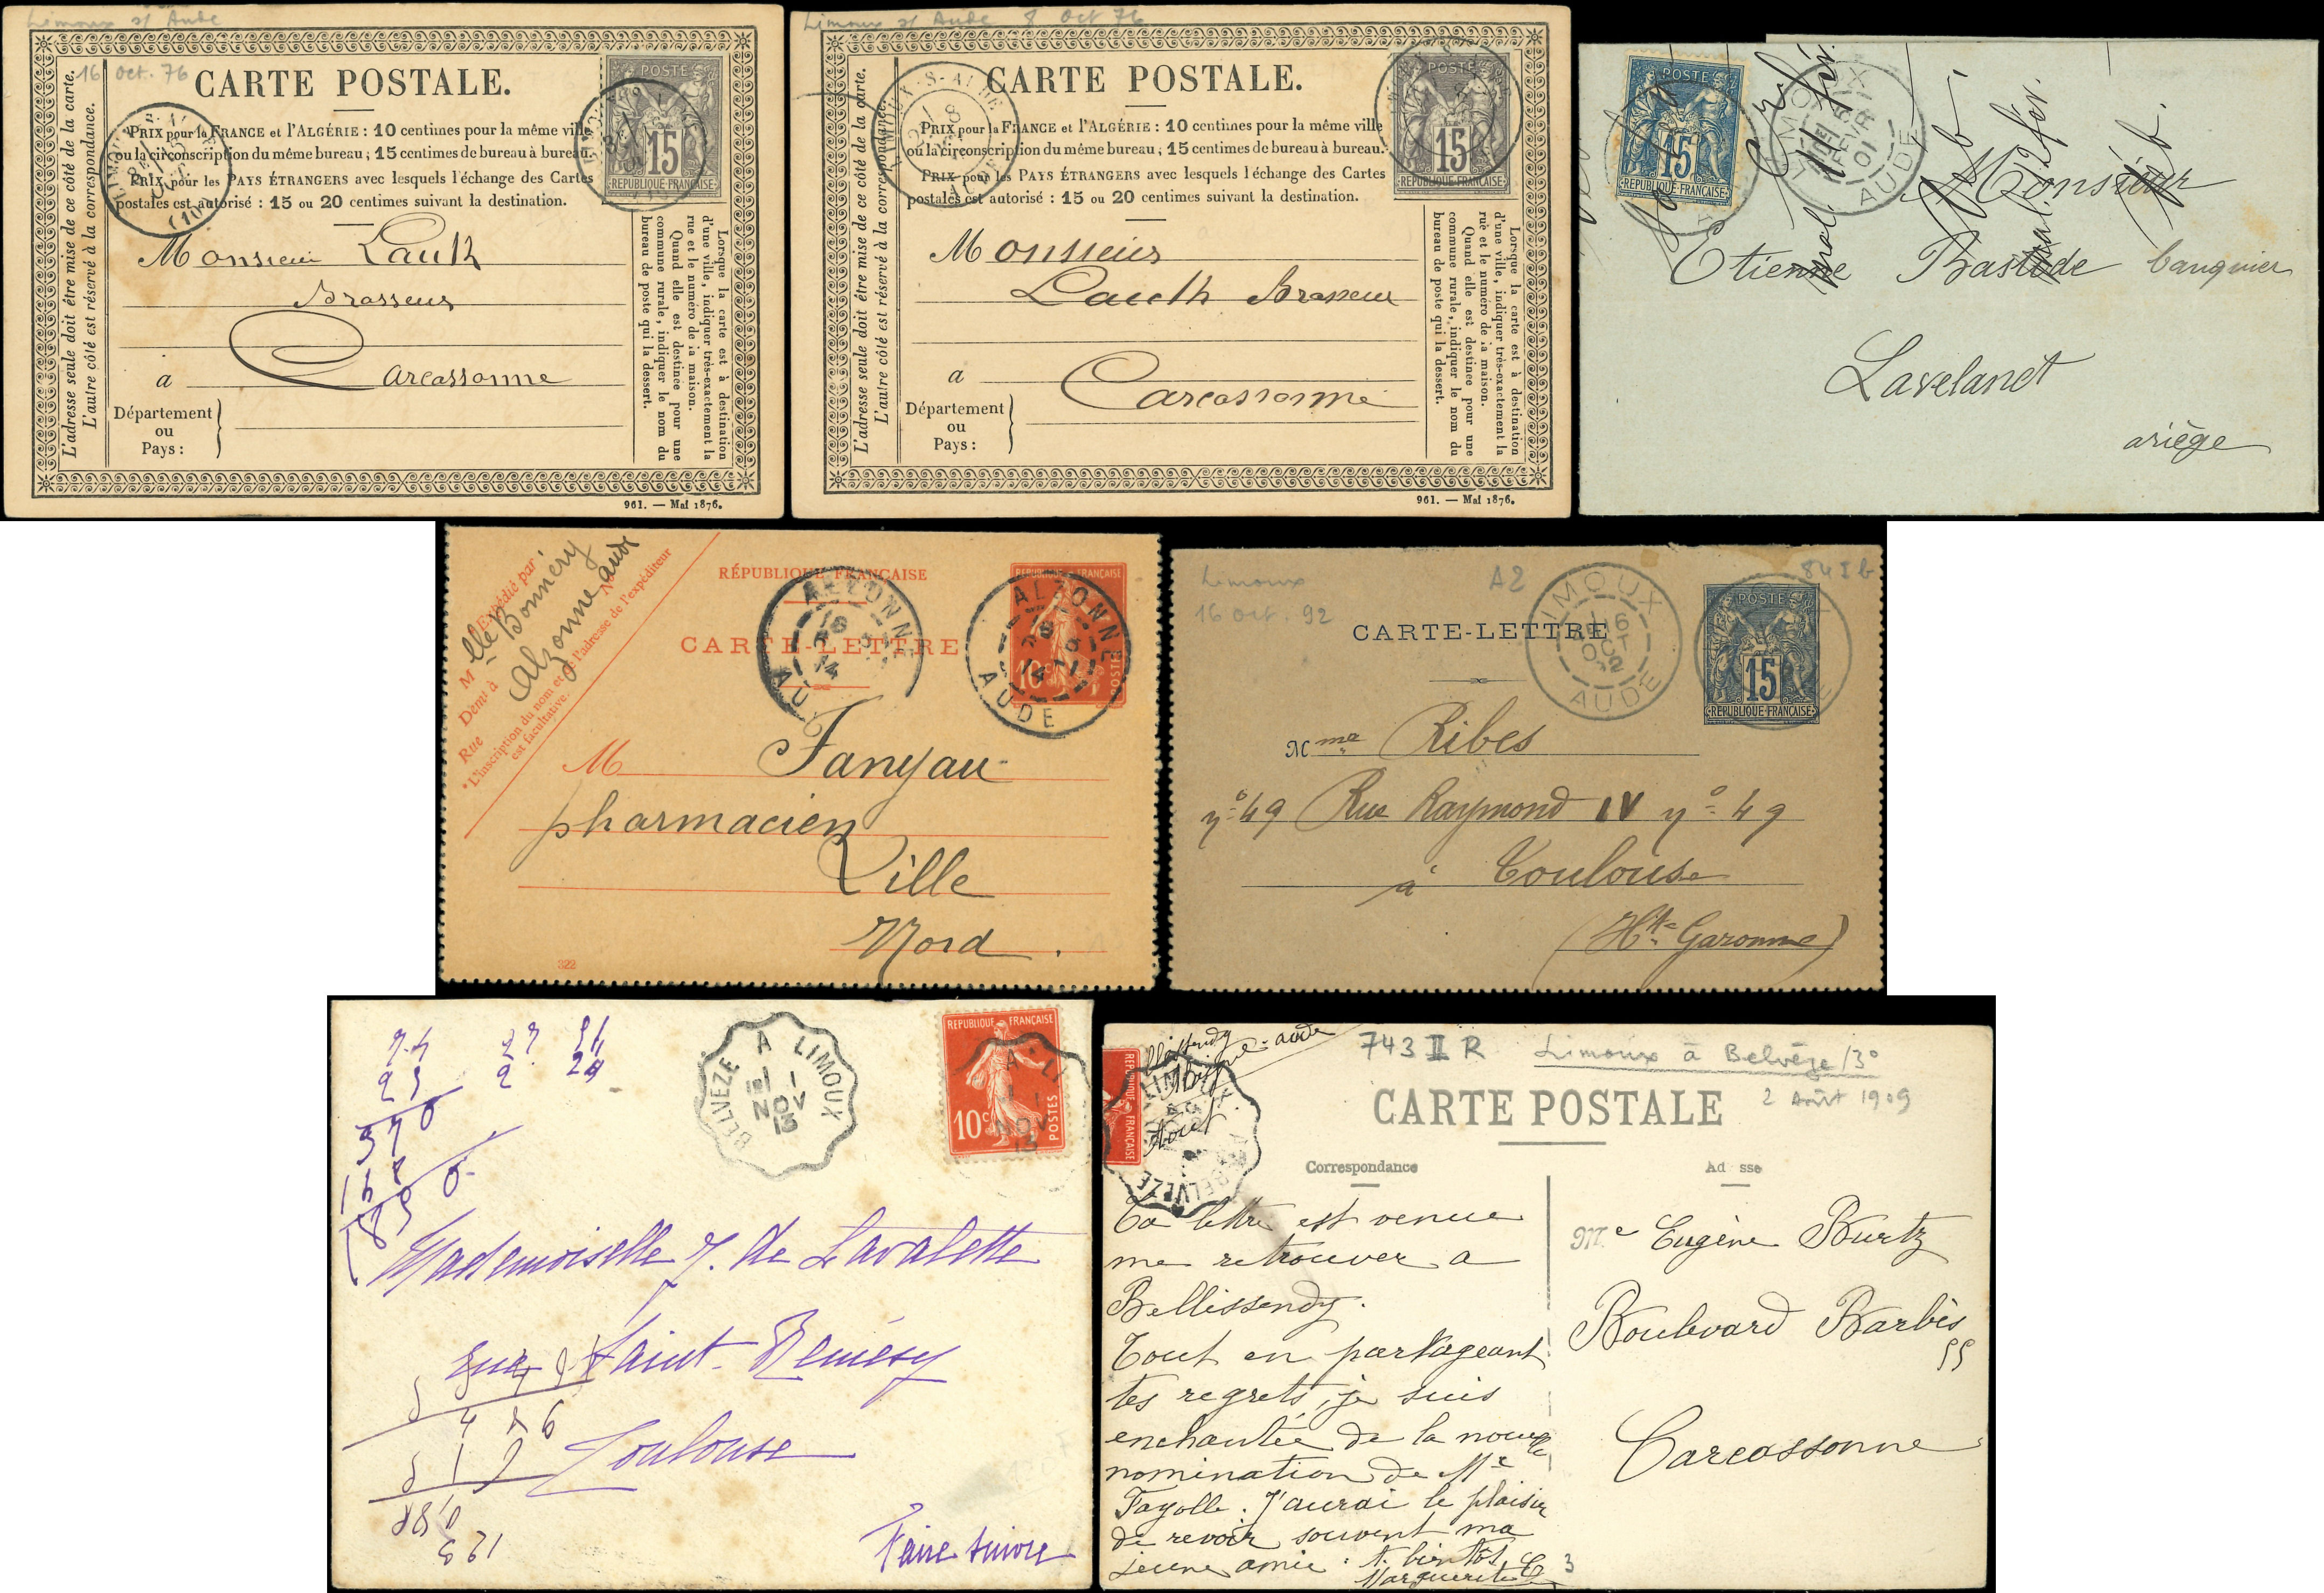 Limoux s/ Aude
16 Oct. 76
CARTE POSTALE.
PRIX pour la FRANCE et l'ALGÉRIE : 10 centimes pour la même ville
ou la circonscription du même bureau ; 15 centimes de bureau à bureau.
PRIX pour les PAYS ÉTRANGERS avec lesquels l'échange des Cartes
postales est autorisé : 15 ou 20 centimes suivant la destination.
L'adresse seule doit être mise de ce côté de la carte.
L'autre côté est réservé à la correspondance.
POSTE
15
REPUBLIQUE FRANÇAISE
Monsieur Lauth
Brasseur
a Carcassonne
Département
ou
Pays :
Lorsque la carte est à destination
d'une ville, indiquer très-exactement la
rue et le numéro de la maison.
Quand elle est destinée pour une
commune rurale, indiquer le nom du
bureau de poste qui la dessert.
961. — Mai 1876.
Limoux s/ Aude 8 Oct 76
CARTE POSTALE.
PRIX pour la FRANCE et l'ALGÉRIE : 10 centimes pour la même ville
ou la circonscription du même bureau ; 15 centimes de bureau à bureau.
PRIX pour les PAYS ÉTRANGERS avec lesquels l'échange des Cartes
postales est autorisé : 15 ou 20 centimes suivant la destination.
L'adresse seule doit être mise de ce côté de la carte.
L'autre côté est réservé à la correspondance.
POSTE
15
REPUBLIQUE FRANÇAISE
Monsieur
Lauth Brasseur
a Carcassonne
Département
ou
Pays :
Lorsque la carte est à destination
d'une ville, indiquer très-exactement la
rue et le numéro de la maison.
Quand elle est destinée pour une
commune rurale, indiquer le nom du
bureau de poste qui la dessert.
961. — Mai 1876.
POSTE
15
REPUBLIQUE FRANÇAISE
LIMOUX
5
FEVR
01
AUDE
Monsieur
Etienne Bastide banquier
Lavelanet
ariège
Expédié par :
Mlle Bonnery
Demt à Alzonne aude
Rue
L'inscription du nom et de l'adresse de l'expéditeur
est facultative.
RÉPUBLIQUE FRANÇAISE
CARTE-LETTRE
ALZONNE
AUDE
REPUBLIQUE FRANÇAISE
10c
POSTES
ALZONNE
AUDE
M Fanyau
pharmacien
Lille
Nord.
322
Limoux
16 Oct. 92
A2
84 I b
CARTE-LETTRE
LIMOUX
16
OCT
AUDE
POSTE
15
REPUBLIQUE FRANÇAISE
Mme Ribes
no 49 Rue Raymond IV no 49
à Toulouse
(Hte Garonne)
BELVEZE A LIMOUX
1
NOV
13
REPUBLIQUE FRANÇAISE
10c
POSTES
Mademoiselle Y. de Lavalette
rue Saint-Rémésy
Toulouse
Faire suivre
743 II R
Limoux à Belvèze /3°
2 Août 1909
REPUBLIQUE FRANÇAISE
CARTE POSTALE
Correspondance
Ad sse
Ta lettre est venue
me retrouver a
Bellissendy.
Tout en partageant
tes regrets, je suis
enchantée de la nouvelle
nomination de Mr
Fayolle. J'aurai le plaisir
de revoir souvent ma
jeune amie. A bientôt
Marguerite
Me Eugène Burtz
Boulevard Barbès
55
Carcassonne
3